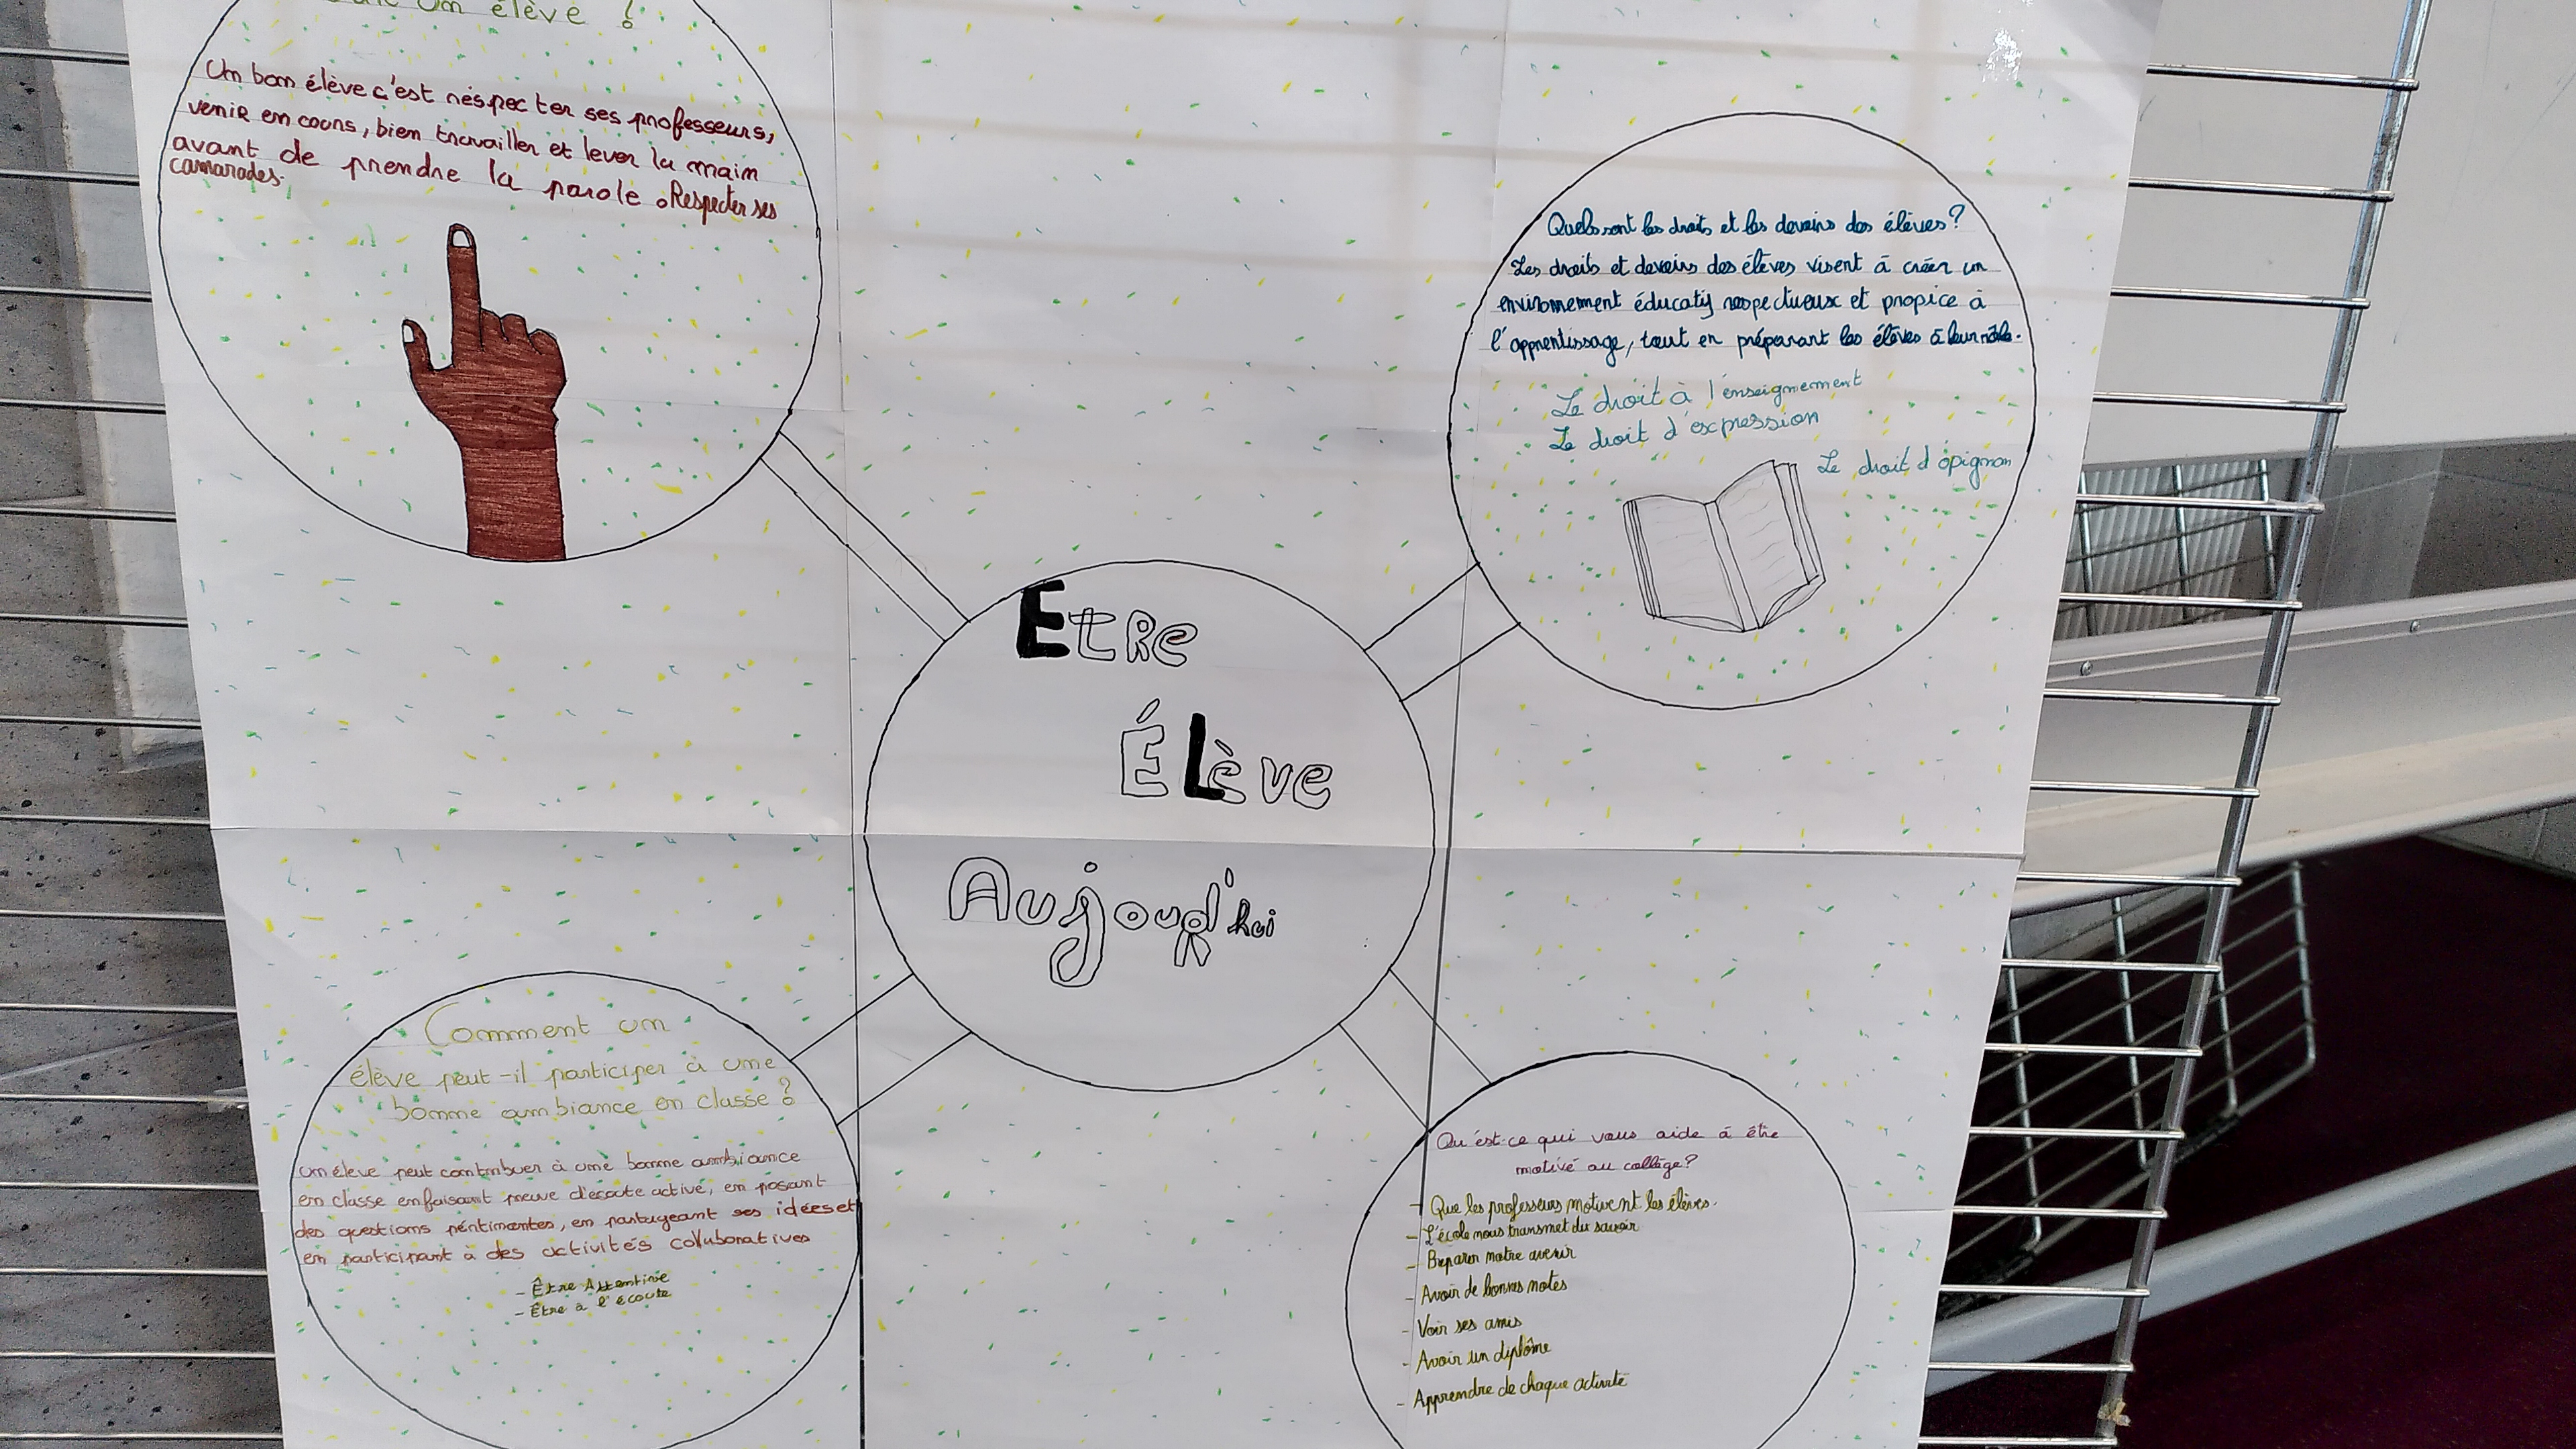 un élève ?
Un bon élève c'est respecter ses professeurs,
venir en cours, bien travailler et lever la main
avant de prendre la parole. Respecter ses
camarades.
Quels sont les droits et les devoirs des élèves ?
Les droits et devoirs des élèves visent à créer un
environnement éducatif respectueux et propice à
l'apprentissage, tout en préparant les élèves à leur rôle.
Le droit à l'enseignement
Le droit d'expression
Le droit d'opignon
Etre
Élève
Aujourd'hui
Comment un
élève peut-il participer à une
bonne ambiance en classe ?
un élève peut contribuer à une bonne ambiance
en classe en faisant preuve d'écoute active, en posant
des questions pertinentes, en partageant ses idées et
en participant à des activités collaboratives
- Être Attentive
- Être à l'écoute
Qu'est-ce qui vous aide à être
motivé au collège ?
- Que les professeurs motivent les élèves.
- L'école nous transmet du savoir
- Préparer notre avenir
- Avoir de bonnes notes
- Voir ses amis
- Avoir un diplôme
- Apprendre de chaque activité